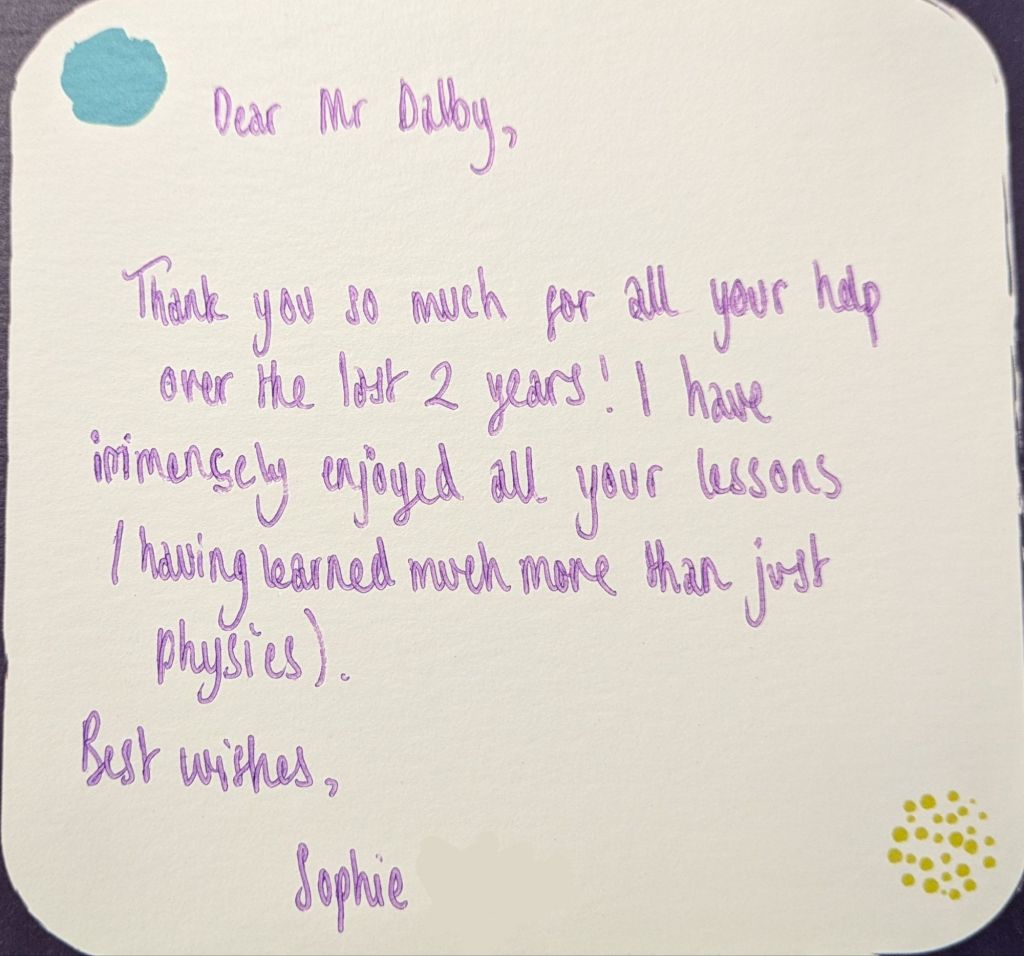 Dear Mr Dalby,
Thank you so much for all your help
over the last 2 years! I have
immensely enjoyed all your lessons
(having learned much more than just
physics).
Best wishes,
Sophie